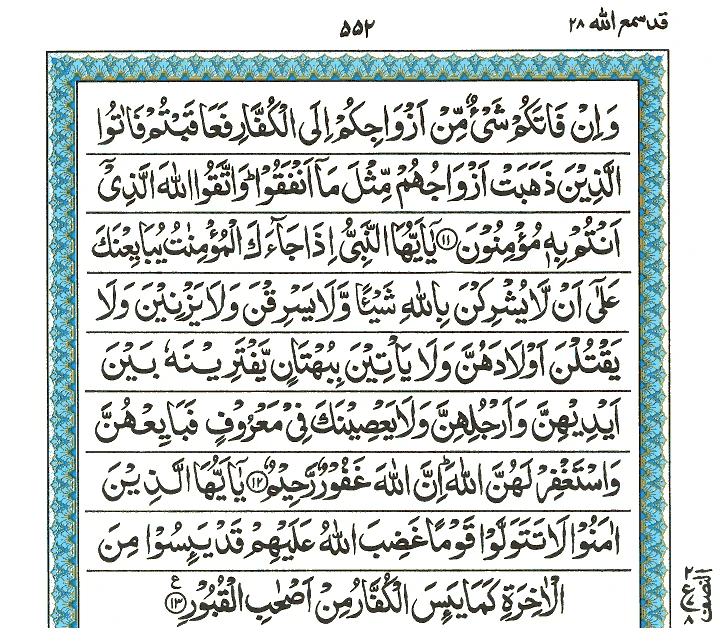 قد سمع الله ٢٨
٥٥٢
وَاِنْ فَاتَكُمْ شَیْءٌ مِّنْ اَزْوَاجِكُمْ اِلَی الْكُفَّارِ فَعَاقَبْتُمْ فَاٰتُوا
الَّذِیْنَ ذَهَبَتْ اَزْوَاجُهُمْ مِّثْلَ مَاۤ اَنْفَقُوْا ؕ وَاتَّقُوا اللّٰهَ الَّذِیْۤ
اَنْتُمْ بِهٖ مُؤْمِنُوْنَ ﴿۱۱﴾ یٰۤاَیُّهَا النَّبِیُّ اِذَا جَآءَكَ الْمُؤْمِنٰتُ یُبَایِعْنَكَ
عَلٰۤی اَنْ لَّا یُشْرِكْنَ بِاللّٰهِ شَیْـًٔا وَّلَا یَسْرِقْنَ وَلَا یَزْنِیْنَ وَلَا
یَقْتُلْنَ اَوْلَادَهُنَّ وَلَا یَاْتِیْنَ بِبُهْتَانٍ یَّفْتَرِیْنَهٗ بَیْنَ
اَیْدِیْهِنَّ وَاَرْجُلِهِنَّ وَلَا یَعْصِیْنَكَ فِیْ مَعْرُوْفٍ فَبَایِعْهُنَّ
وَاسْتَغْفِرْ لَهُنَّ اللّٰهَ ؕ اِنَّ اللّٰهَ غَفُوْرٌ رَّحِیْمٌ ﴿۱۲﴾ یٰۤاَیُّهَا الَّذِیْنَ
اٰمَنُوْا لَا تَتَوَلَّوْا قَوْمًا غَضِبَ اللّٰهُ عَلَیْهِمْ قَدْ یَىِٕسُوْا مِنَ
الْاٰخِرَةِ كَمَا یَىِٕسَ الْكُفَّارُ مِنْ اَصْحٰبِ الْقُبُوْرِ ﴿۱۳﴾ ع
النصف
٢
ع
٧
٨